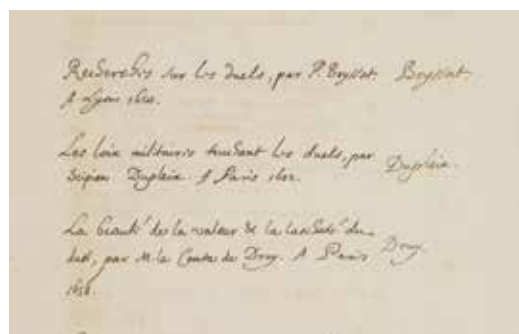 Recherches sur les duels, par P. Boyssat Boyssat
A Lyon 1610.
Les loix militaires touchant les duels, par
Scipion Dupleix. A Paris 1602. Dupleix.
La beauté de la valeur & la lascheté du
duel, par M. le Comte de Druy. A Paris Druy
1658.